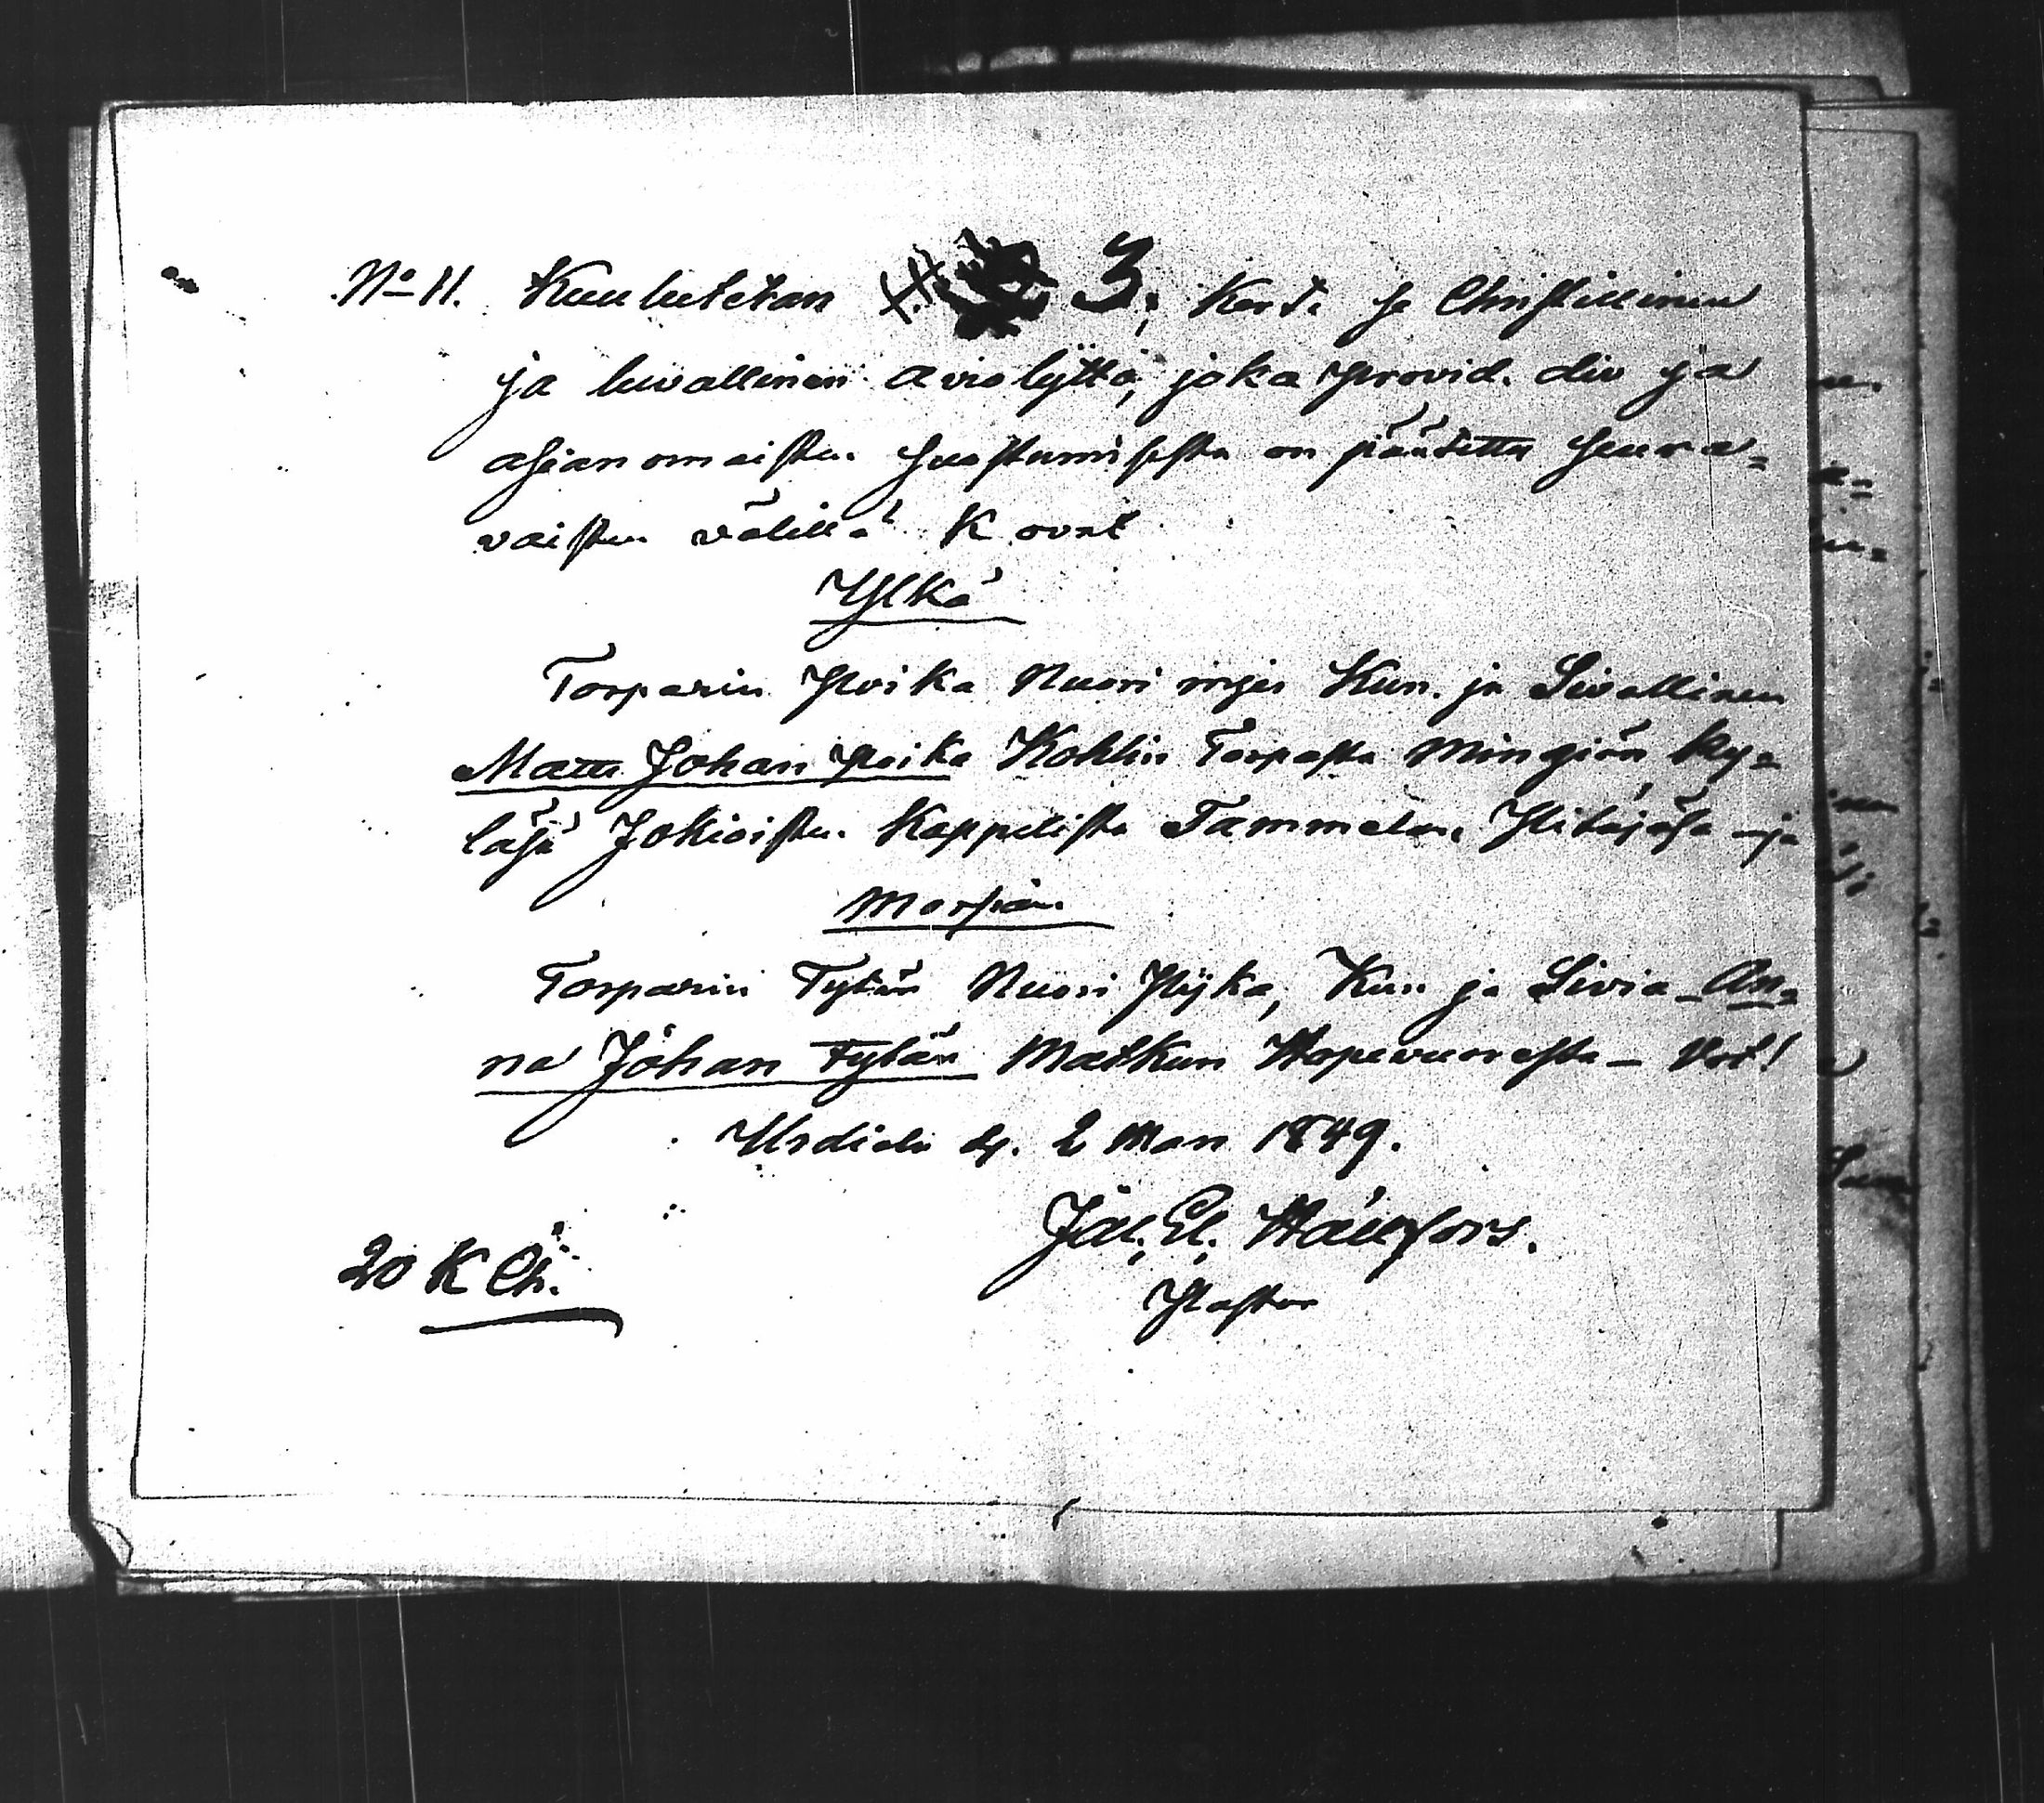 No 11. Kuulutetan 3; Kerta se Christillinen
ja luwallinen aviolijtto, joka provid. div ja
asianomaisten suostumisesta on päätetty seura=
vaisten välillä K. ovat
Ylkä
Torparin Poika Nuori mies Kun. ja Sivallinen
Matts Johan poika Kohlin Torpasta Mingiön ky=
läsä Jokioisten Kappelista Tammelan Pitäjäsä – ja
Morsian
Torparin Tytär Nuori Pijka, Kun ja Sivia – An=
na Johan Tytär Matkun Hopevuoresta –
Urdiala d. 2 Mars 1849.
20 K
Pastor